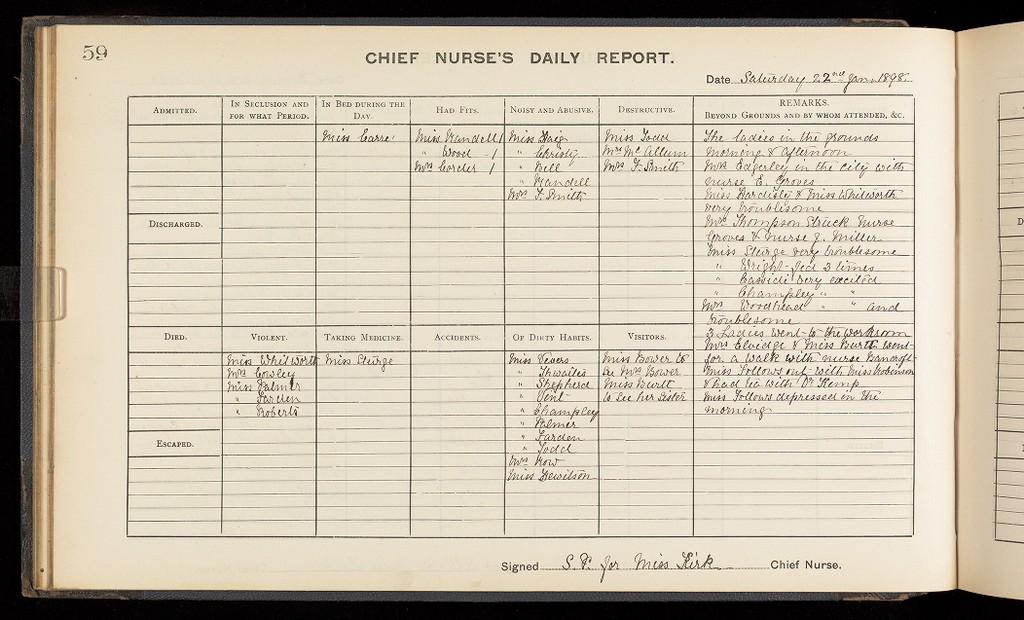 59
CHIEF NURSE'S DAILY REPORT.
Date Saturday 22nd Jan. 1898.
ADMITTED.
IN SECLUSION AND
FOR WHAT PERIOD.
IN BED DURING THE
DAY.
Miss Carre
HAD FITS.
Miss Mandell 1
" Wood - 1
Mrs Corder 1
NOISY AND ABUSIVE.
Miss Haig
" Christy
" Bell
" Mandell
Mrs T. Smith
DESTRUCTIVE.
Miss Todd
Mrs McCallum
Mrs T. Smith
REMARKS.
BEYOND GROUNDS AND BY WHOM ATTENDED, &C.
The ladies in the grounds
morning & afternoon
Mrs Edgerley in the city with
nurse E. Groves
Miss Hardisty & Miss Whitworth
very troublesome
Mrs Thompson Struck Nurse
Groves & nurse J. Miller
Miss Sturge very troublesome
" Wright fed 3 times
" Cassidi very excited
" Champley " "
Mrs Woodhead " " and
troublesome
3 Ladies went to the workroom
Mrs Elvidge & Miss Burtt went
for a walk with nurse Bancroft
Miss Follows out with Miss Robinson
& had tea with Dr Kemp
Miss Follows depressed in the
morning
DISCHARGED.
DIED.
VIOLENT.
Miss Whitworth
Mrs Cowley
Miss Palmer
" Farden
" Roberts
TAKING MEDICINE.
Miss Sturge
ACCIDENTS.
OF DIRTY HABITS.
Miss Vevers
" Thwaites
" Shepherd
" Pent
" Champley
" Palmer
" Farden
" Todd
Mrs Row
Miss Hewitson
VISITORS.
Miss Bower to
see Mrs Bower
Miss Burtt
to see her Sister
ESCAPED.
Signed S. P. for Miss Kirk Chief Nurse.